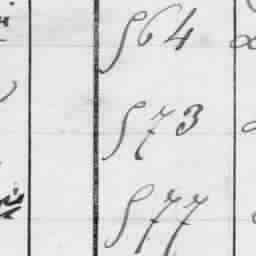 564
573
577